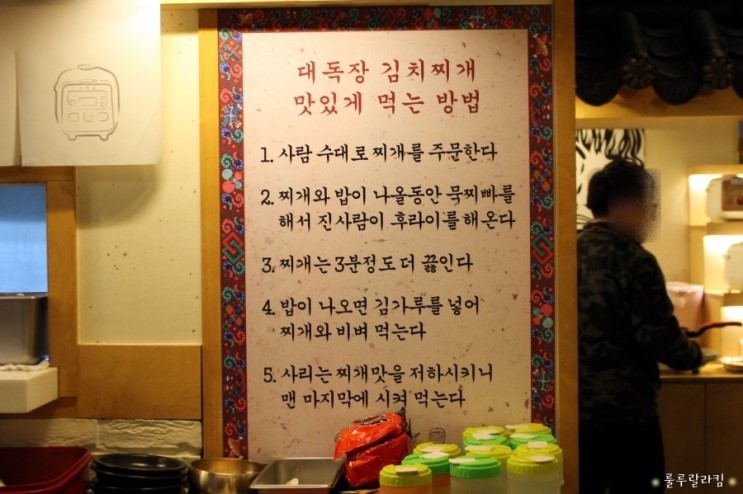 대독장 김치찌개
맛있게 먹는 방법
1. 사람 수대로 찌개를 주문한다
2. 찌개와 밥이 나올동안 묵찌빠를
해서 진사람이 후라이를 해온다
3. 찌개는 3분정도 더 끓인다
4. 밥이 나오면 김가루를 넣어
찌개와 비벼 먹는다
5. 사리는 찌개맛을 저하시키니
맨 마지막에 시켜 먹는다
룰루랄라킴